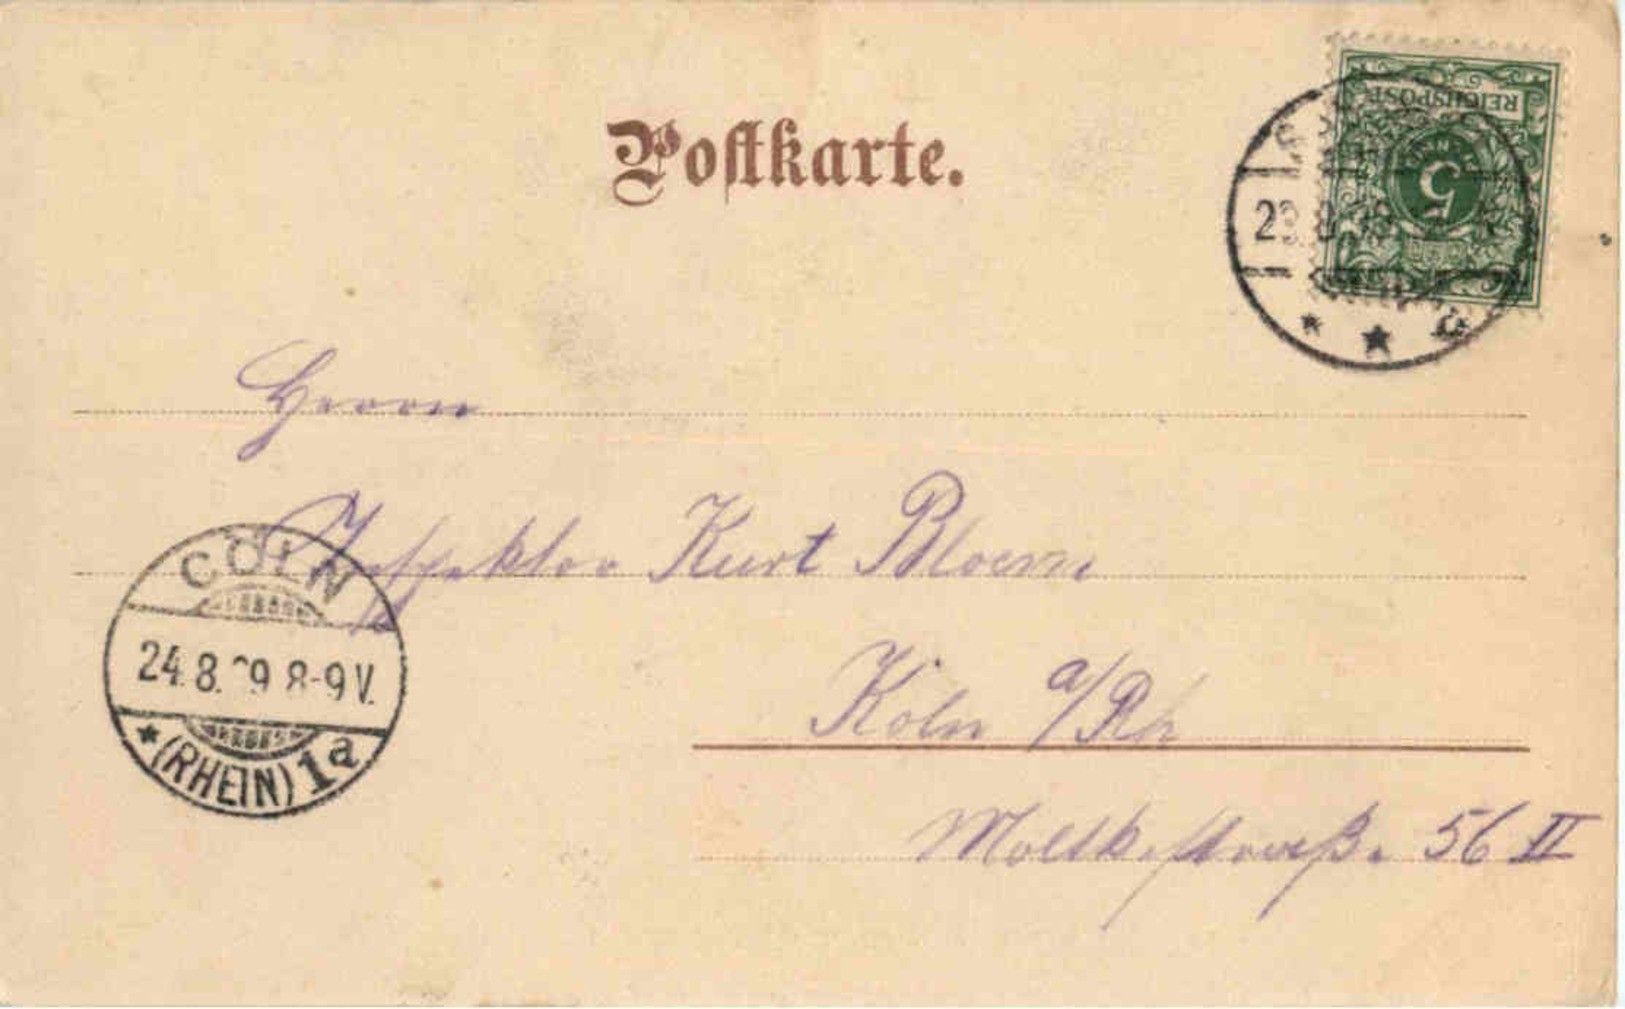 Postkarte.
REICHSPOST
5
Herrn
Inspektor Kurt Bloem
Köln a/Rh
Moltkestraße 56 II
CÖLN
24.8. 9 8-9 V.
* (RHEIN) 1a